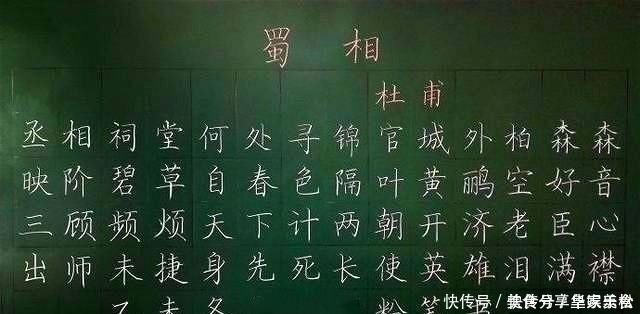 蜀相
杜甫
丞相祠堂何处寻锦官城外柏森森
映阶碧草自春色隔叶黄鹂空好音
三顾频烦天下计两朝开济老臣心
出师未捷身先死长使英雄泪满襟
快传号 /